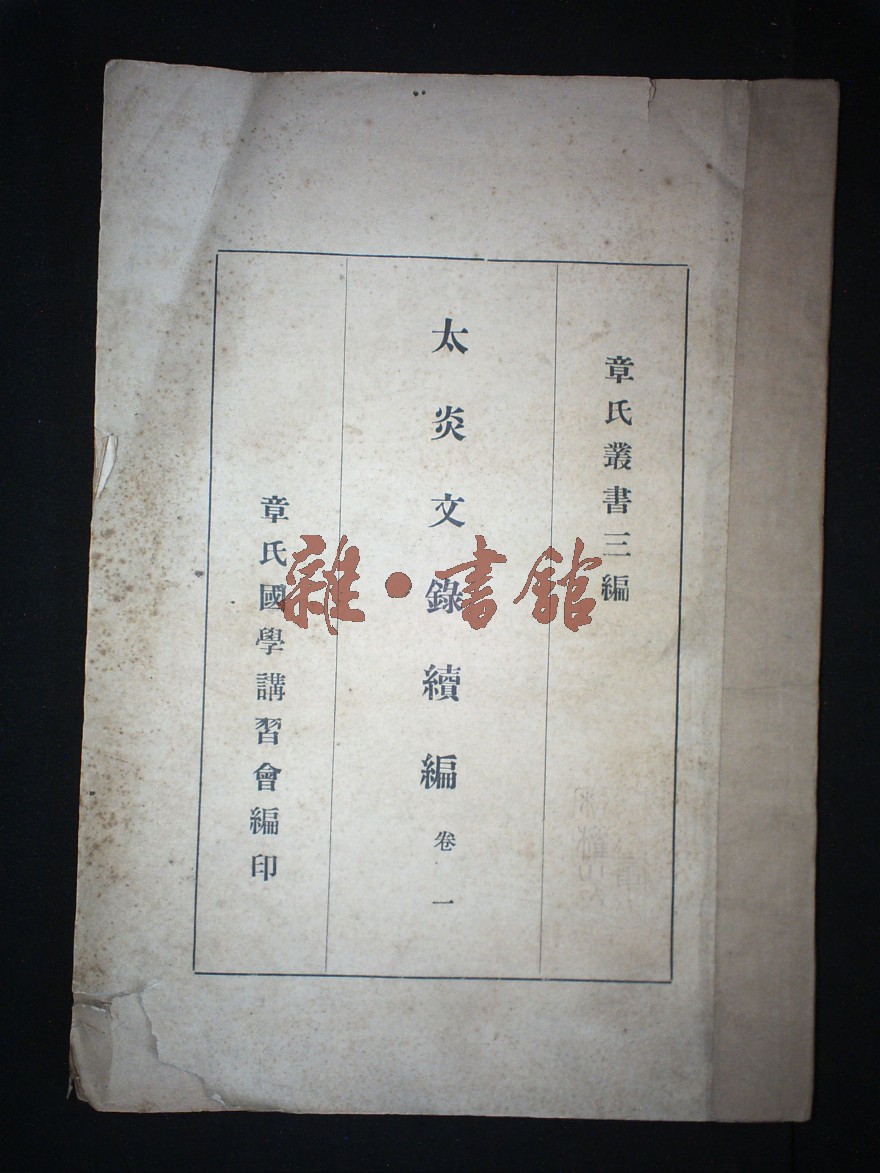 章氏叢書三編
太炎文錄續編 卷一
章氏國學講習會編印
雜·書館